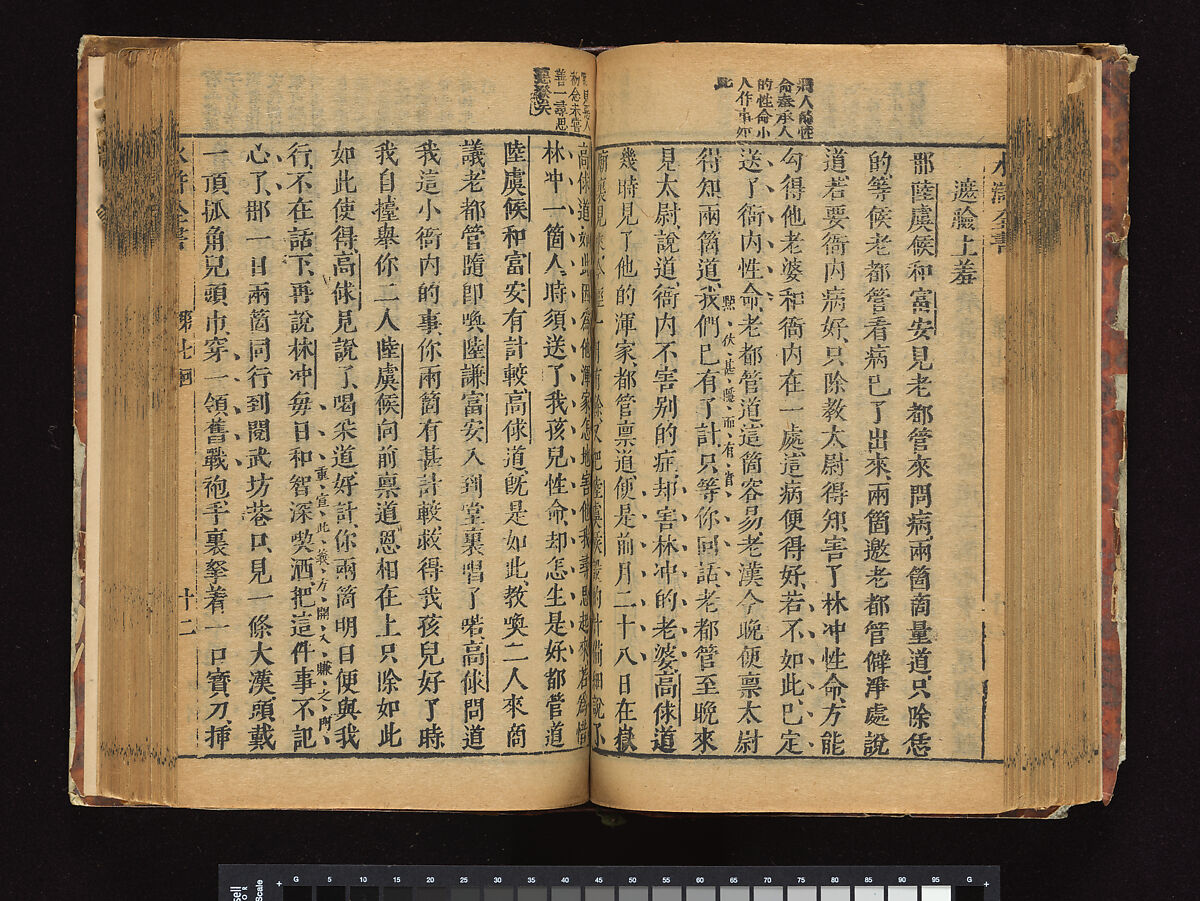 水滸全書
遮臉上羞
那陸虞候和富安見老都管來問病兩箇商量道只除恁
的等候老都管看病已了出來兩箇邀老都管僻淨處說
道若要衙内病好只除教太尉得知害了林冲性命方能
勾得他老婆和衙内在一處這病便得好若不如此已定
送了衙内性命老都管道這箇容易老漢今晚便禀太尉
得知兩箇道我們已有了計只等你回話老都管至晚來
見太尉說道衙内不害别的症却害林冲的老婆高俅道
幾時見了他的渾家都管禀道便是前月二十八日在嶽
廟裏見來今經一月有餘又把陸虞候設的計備細說了
高俅道如此因爲他渾家怎地害他我尋思起來若爲惜
林冲一箇人時須送了我孩兒性命却怎生是好都管道
陸虞候和富安有計較高俅道旣是如此教喚二人來商
議老都管隨卽喚陸謙富安入到堂裏唱了喏高俅問道
我這小衙内的事你兩箇有甚計較救得我孩兒好了時
我自擡舉你二人陸虞候向前禀道恩相在上只除如此
如此使得高俅見說了喝采道好計你兩箇明日便與我
行不在話下再說林冲每日和智深喫酒把這件事不記
心了那一日兩箇同行到閱武坊巷口見一條大漢頭戴
一頂抓角兒頭巾穿一領舊戰袍手裏拏着一口寳刀揷
水滸全書
第七囘
十二
將人的性
命奉承人
的性命小
人作事如
此
善一尋思
惡發矣
黙伏甚隱而有實
重宣此義方開人賺之門
G 5 10 15 20 25 30 35 40 45 50 55 60 65 70 75 80 85 90 95 G
Scale